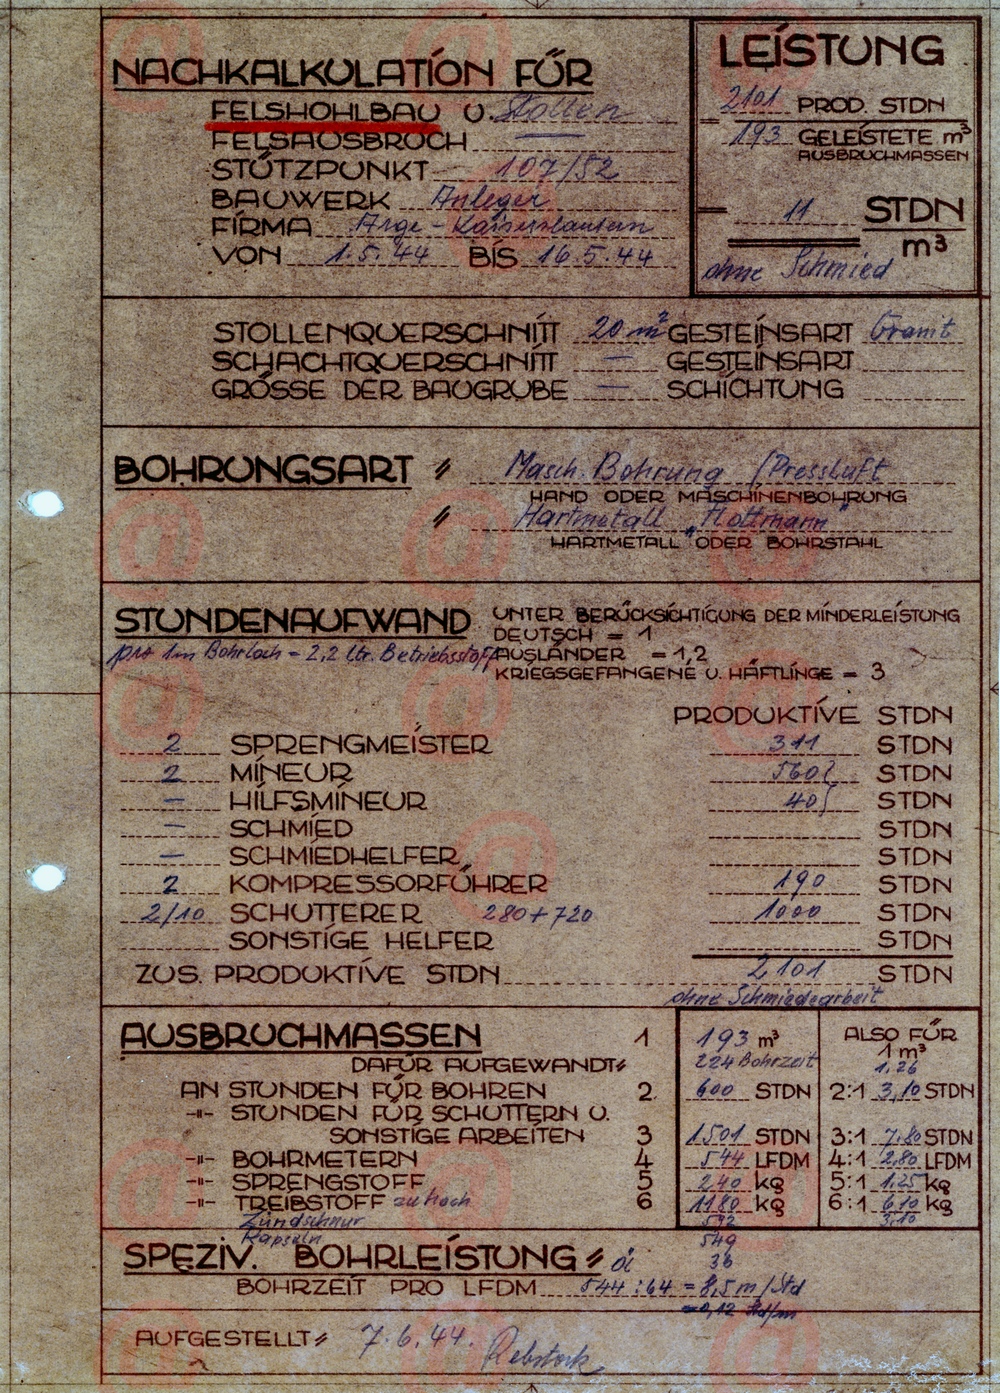 NACHKALKULATION FÜR
FELSHOHLBAU U. Stollen
FELSAUSBRUCH
STÜTZPUNKT 107/52
BAUWERK Anleger
FIRMA Arge - Kaiserslautern
VON 1.5.44 BIS 16.5.44
LEISTUNG
2101 PROD. STDN
193 GELEISTETE m³
AUSBRUCHMASSEN
11 STDN
m³
ohne Schmied
STOLLENQUERSCHNITT 20 m² GESTEINSART Granit
SCHACHTQUERSCHNITT — GESTEINSART
GRÖSSE DER BAUGRUBE — SCHICHTUNG
BOHRUNGSART " Masch. Bohrung / Pressluft
HAND ODER MASCHINENBOHRUNG
" Hartmetall „Flottmann"
HARTMETALL ODER BOHRSTAHL
STUNDENAUFWAND UNTER BERÜCKSICHTIGUNG DER MINDERLEISTUNG
DEUTSCH = 1
pro 1m Bohrloch = 2,2 ltr. Betriebsstoff AUSLÄNDER = 1,2
KRIEGSGEFANGENE U. HÄFTLINGE = 3
PRODUKTIVE STDN
2 SPRENGMEISTER 311 STDN
2 MINEUR 560 STDN
— HILFSMINEUR 40 STDN
— SCHMIED STDN
— SCHMIEDHELFER STDN
2 KOMPRESSORFÜHRER 190 STDN
2/10 SCHUTTERER 280+720 1000 STDN
SONSTIGE HELFER STDN
ZUS. PRODUKTIVE STDN 2101 STDN
ohne Schmiedearbeit
AUSBRUCHMASSEN 1 193 m³ ALSO FÜR
1 m³
DAFÜR AUFGEWANDT: 224 Bohrzeit 1,26
AN STUNDEN FÜR BOHREN 2 600 STDN 2:1 3,10 STDN
-"- STUNDEN FÜR SCHUTTERN U.
SONSTIGE ARBEITEN 3 1501 STDN 3:1 7,80 STDN
-"- BOHRMETERN 4 544 LFDM 4:1 2,80 LFDM
-"- SPRENGSTOFF 5 240 kg 5:1 1,25 kg
-"- TREIBSTOFF zu hoch 6 1180 kg 6:1 6,10 kg
Zündschnur 592 3,10
Kapseln 549
SPEZIV. BOHRLEISTUNG 36
BOHRZEIT PRO LFDM 544 : 64 = 8,5 m/Std
= 0,12 Std/m
AUFGESTELLT: 7.6.44. Rebstock